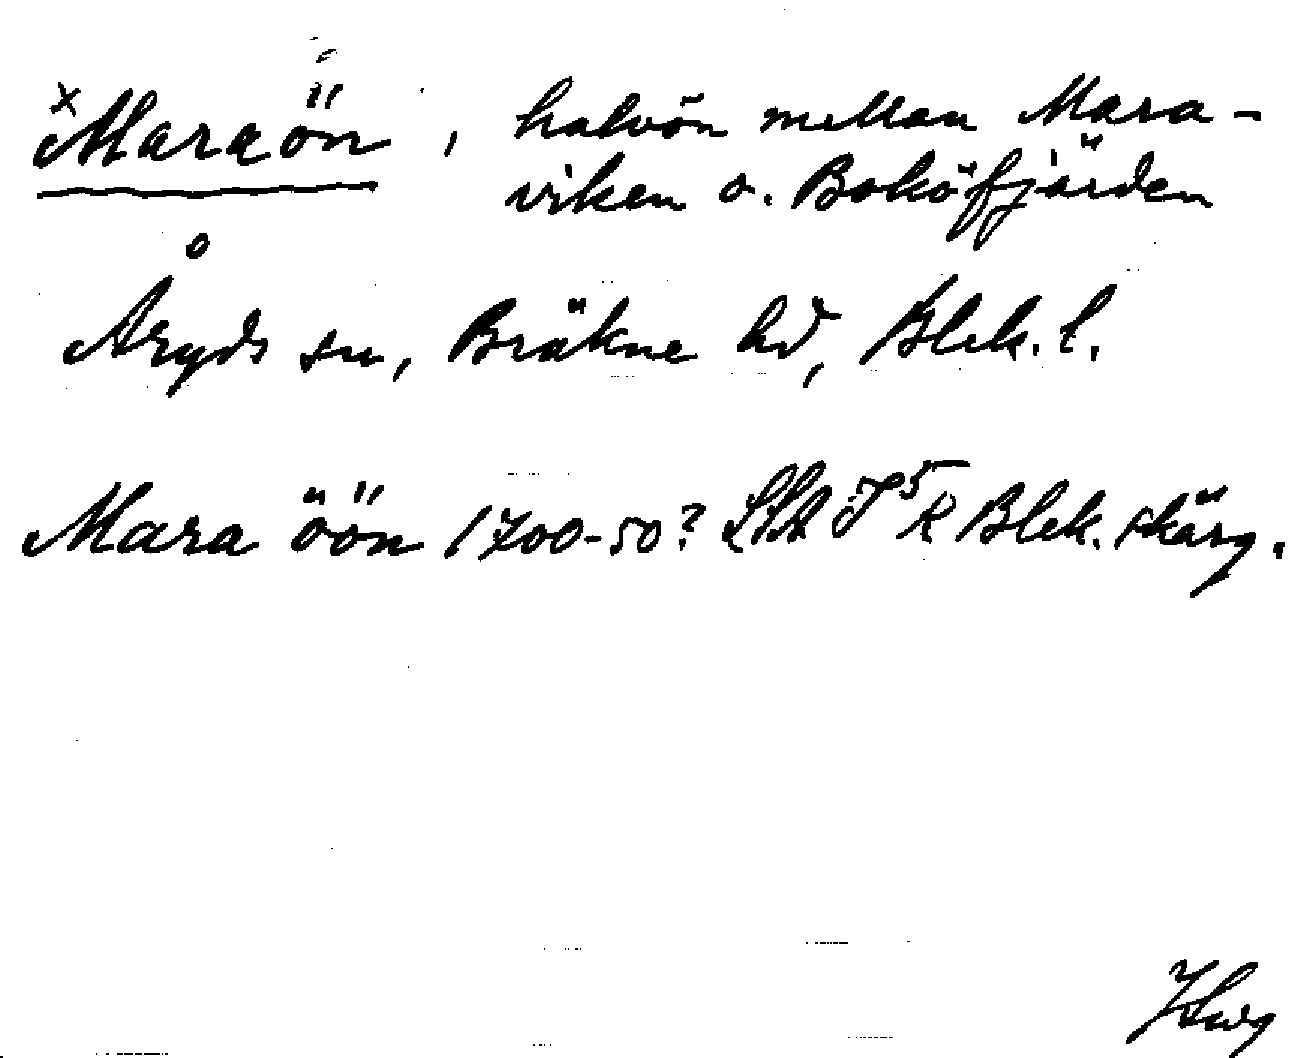 xMaraön, halvön mellan Mara-
viken o. Boköfjärden
Åryds sn, Bräkne hd, Blek. l.
Mara öön 1700-50? Blek. skärg.